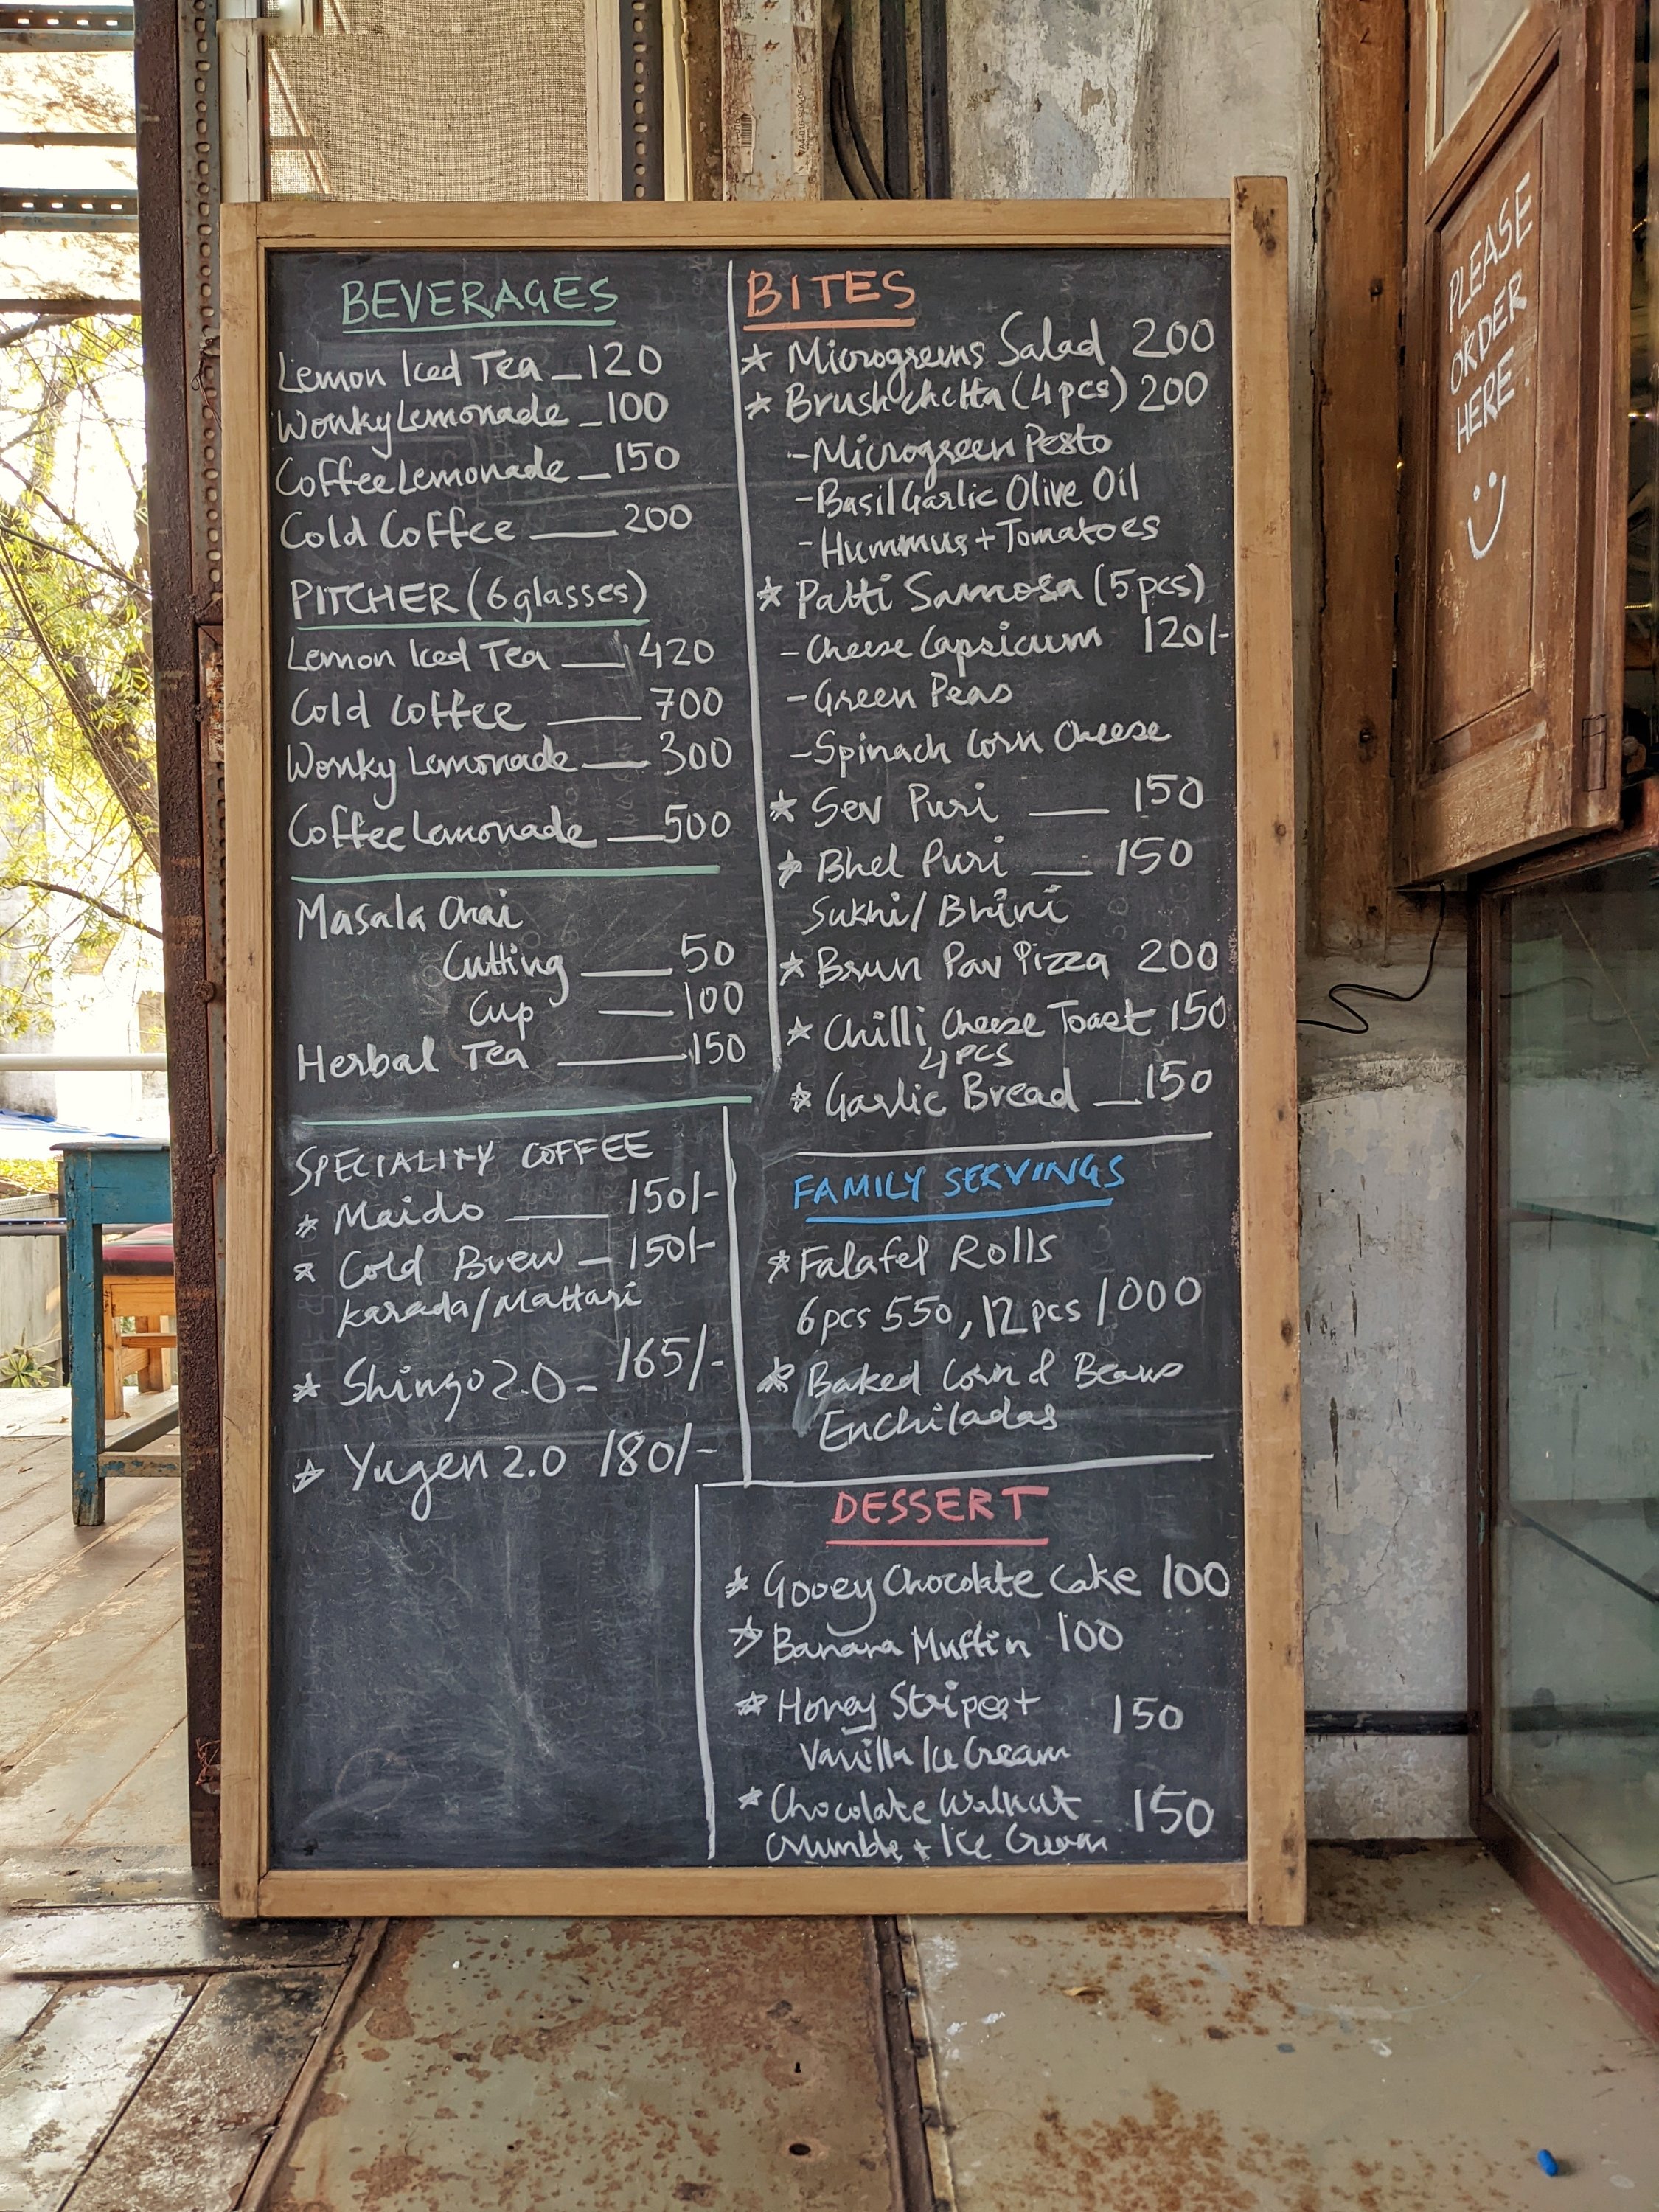 BEVERAGES
Lemon Iced Tea _ 120
Wonky Lemonade _ 100
Coffee Lemonade _ 150
Cold Coffee ___ 200
PITCHER (6 glasses)
Lemon Iced Tea ___ 420
Cold Coffee ___ 700
Wonky Lemonade ___ 300
Coffee Lemonade ___ 500
Masala Chai
Cutting ___ 50
Cup ___ 100
Herbal Tea ___ 150
SPECIALITY COFFEE
★ Maido ___ 150/-
★ Cold Brew _ 150/-
Karada/Mattari
★ Shingo 2.0 - 165/-
★ Yugen 2.0 180/-
BITES
★ Microgreens Salad 200
★ Brushchetta (4 pcs) 200
- Microgreen Pesto
- Basil Garlic Olive Oil
- Hummus + Tomatoes
★ Patti Samosa (5 pcs)
- Cheese Capsicum 120/-
- Green Peas
- Spinach Corn Cheese
★ Sev Puri ___ 150
★ Bhel Puri ___ 150
Sukhi/Bhini
★ Brun Pav Pizza 200
★ Chilli Cheese Toast 150
4 PCS
★ Garlic Bread _ 150
FAMILY SERVINGS
★ Falafel Rolls
6 pcs 550, 12 pcs 1000
★ Baked Corn & Beans
Enchiladas
DESSERT
★ Gooey Chocolate Cake 100
★ Banana Muffin 100
★ Honey Stripes + 150
Vanilla Ice Cream
★ Chocolate Walnut 150
Crumble + Ice Cream
PLEASE
ORDER
HERE